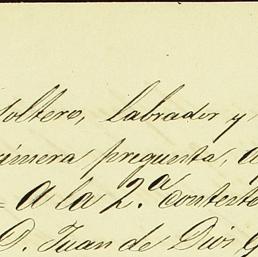 soltero, labrador y
primera pregunta,
= A la 2.ª contesto
D. Juan de Dios G